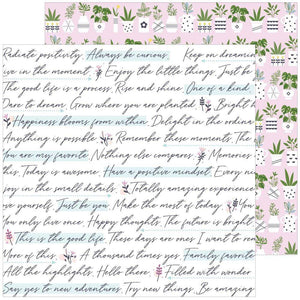 Radiate positivity. Always be curious. Keep on dreamin
ive in the moment. Enjoy the little things. Just be
The good life is a process. Rise and shine. One of a kind.
Dare to dream. Grow where you are planted. Bright
Happiness blooms from within. Delight in the ordina
Anything is possible. Remember these moments. The
You are my favorite. Nothing else compares. Memories
this. Today is awesome. Have a positive mindset. Every
joy in the small details. Totally amazing experience
ve yourself. Just be you. Make the most of today. You
You only live once. Happy thoughts. The future is bright
This is the good life. These days are ones I want to re
More of this. A thousand times yes. Family favorite
All the highlights. Hello there. Filled with wonder.
Say yes to new adventures. Try new things. Be amazing